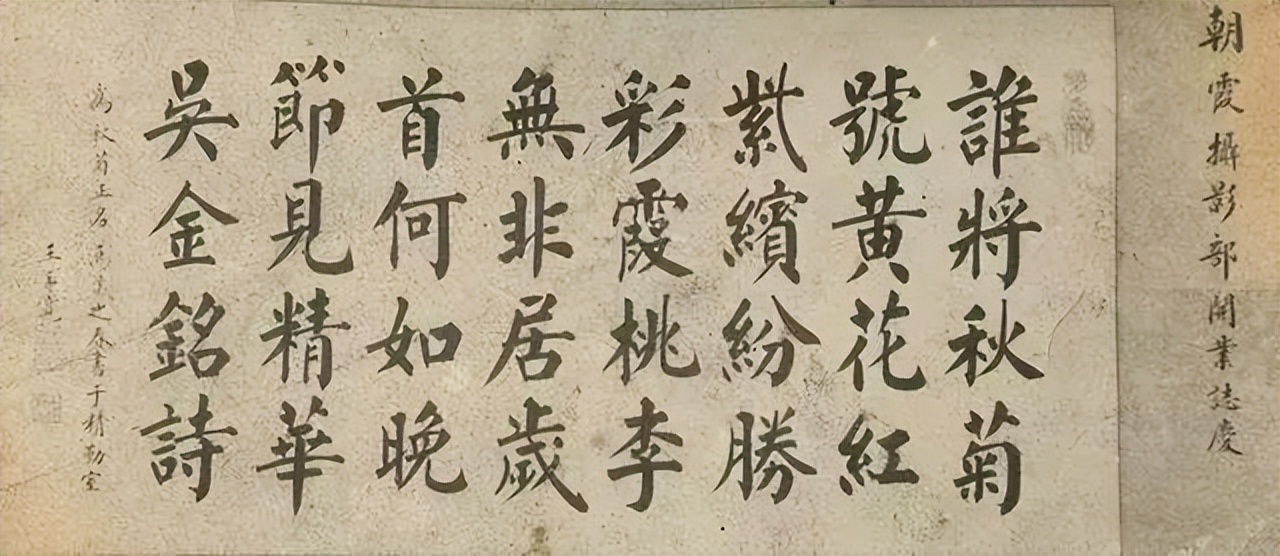 朝霞攝影部開業誌慶
誰將秋菊
號黃花紅
紫繽紛勝
彩霞桃李
無非居歲
首何如晚
節見精華
吳金銘詩
為秋菊正名之春書于精勤室
王